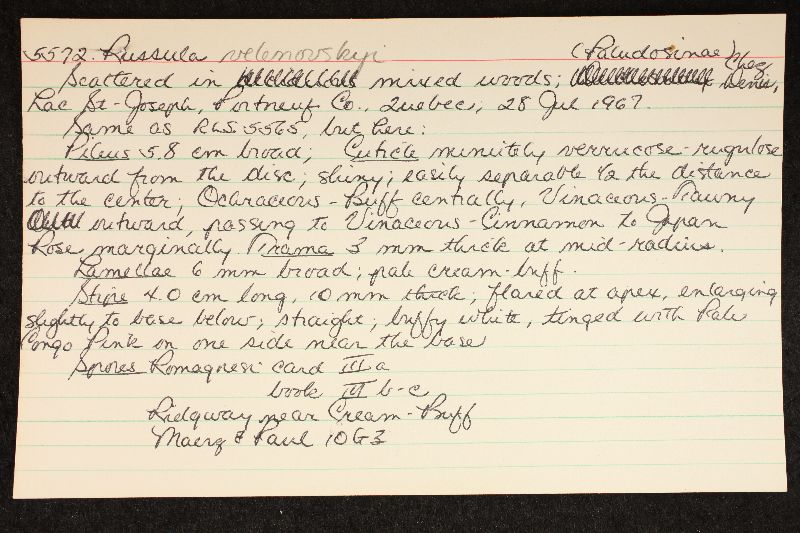 5572. Russula velenovskyi (Paludosinae)
Scattered in mixed woods; Chez Denis,
Lac St-Joseph, Portneuf Co., Quebec; 28 Jul 1967.
Same as RLS 5565, but here:
Pileus 5.8 cm broad; Cuticle minutely verrucose-rugulose
outward from the disc; shiny; easily separable 1/2 the distance
to the center; Ochraceous-Buff centrally, Vinaceous-Tawny
outward, passing to Vinaceous-Cinnamon to Japan
Rose marginally. Trama 3 mm thick at mid-radius.
Lamellae 6 mm broad; pale cream-buff.
Stipe 4.0 cm long, 10 mm thick; flared at apex, enlarging
slightly to base below; straight; buffy white, tinged with Pale
Congo Pink on one side near the base
Spores Romagnesi card III a
book III b-c
Ridgway near Cream-Buff
Maerz & Paul 10G3